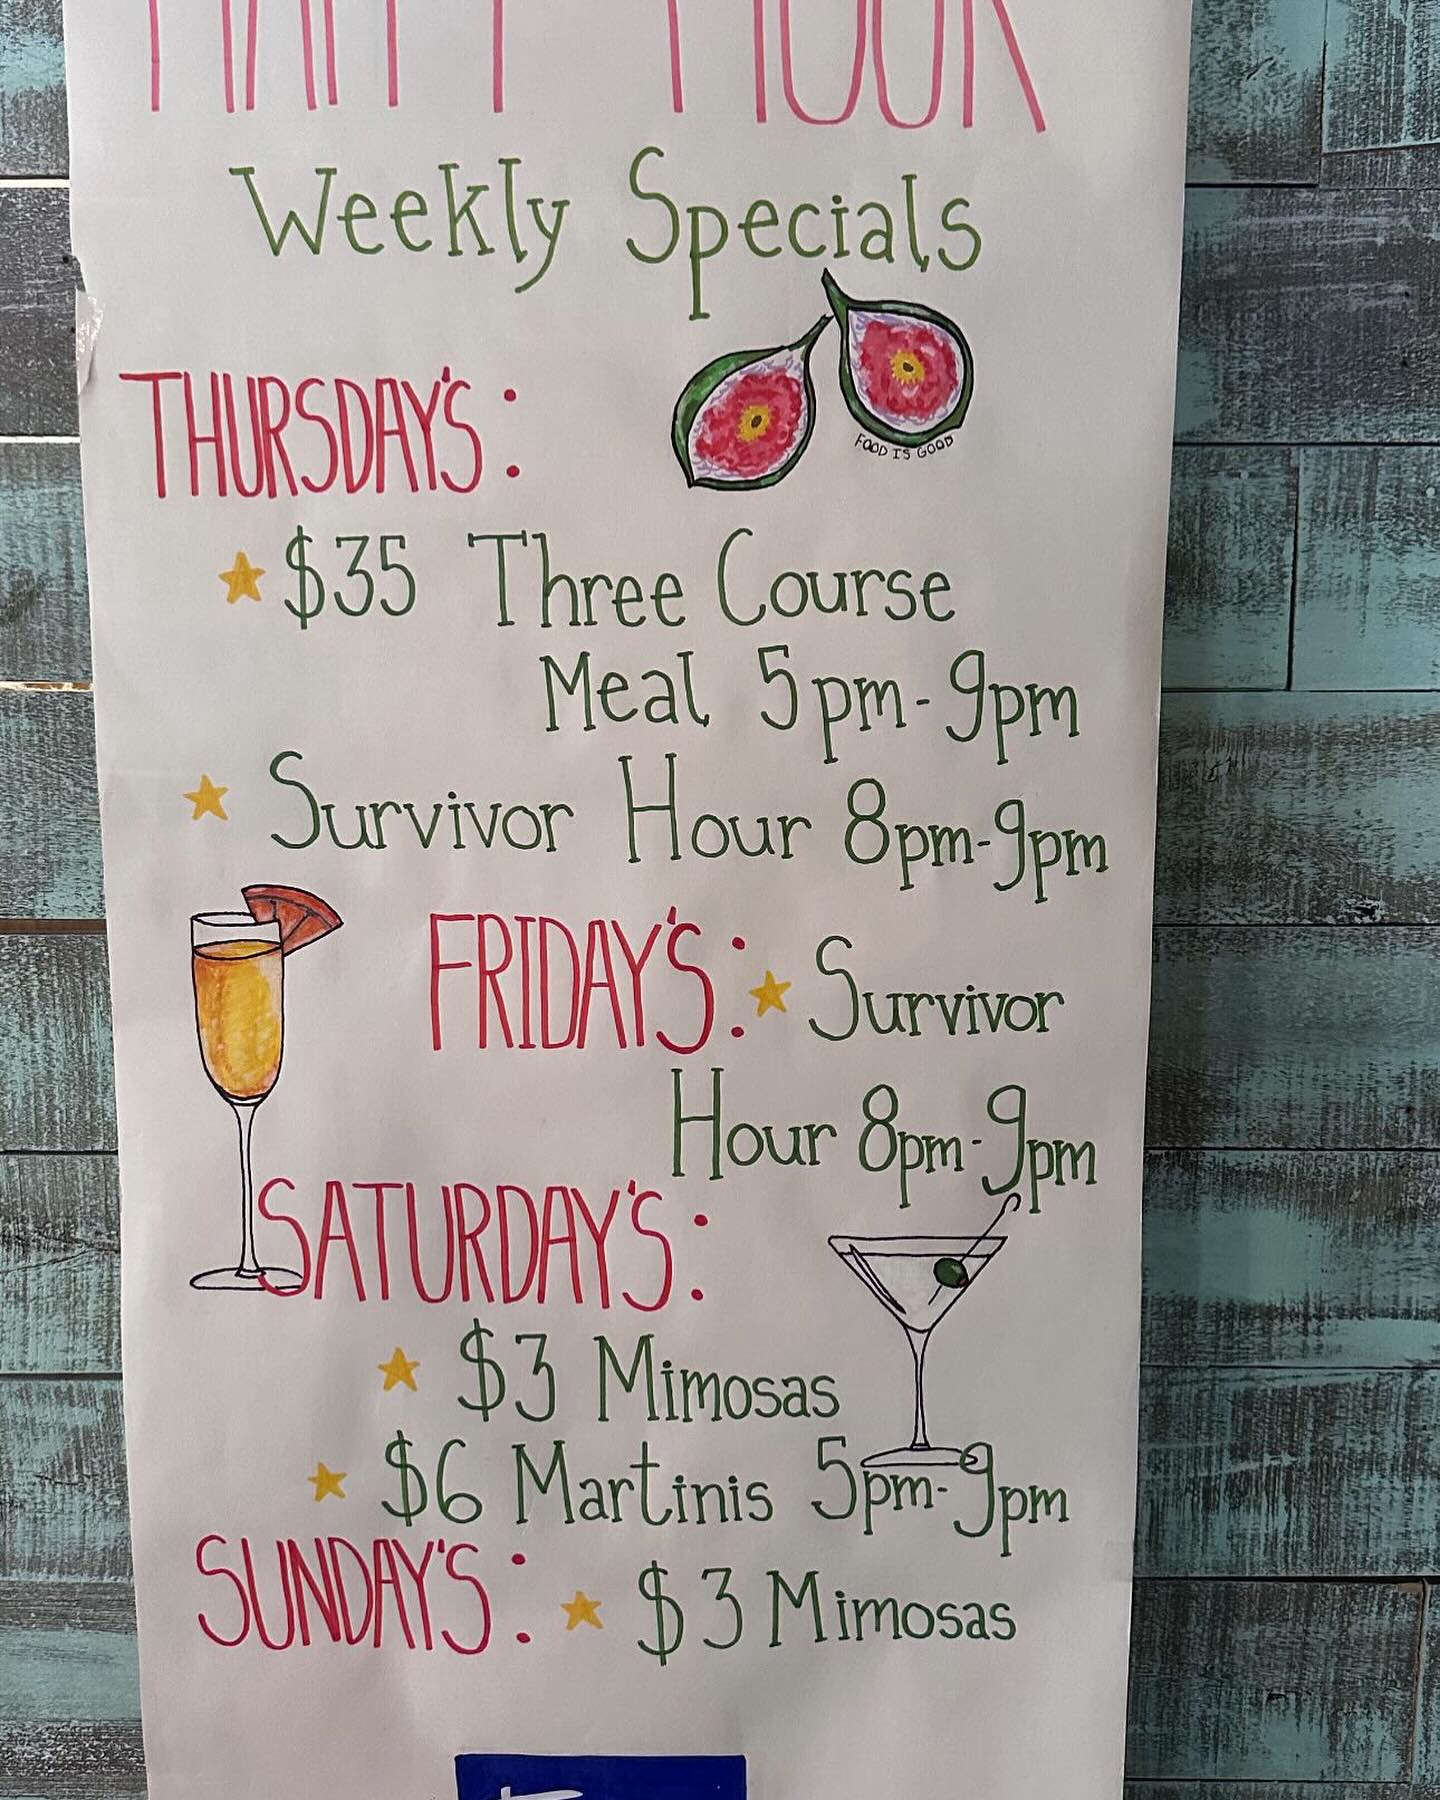 HAPPY HOUR
Weekly Specials
THURSDAY'S:
FOOD IS GOOD
$35 Three Course
Meal 5pm-9pm
Survivor Hour 8pm-9pm
FRIDAY'S: Survivor
Hour 8pm-9pm
SATURDAY'S:
$3 Mimosas
$6 Martinis 5pm-9pm
SUNDAY'S: $3 Mimosas